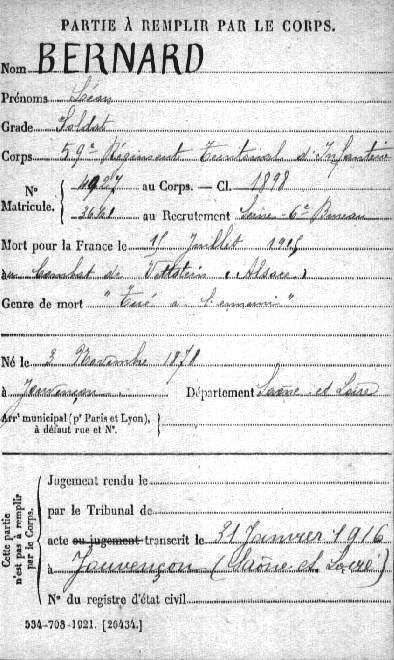 PARTIE À REMPLIR PAR LE CORPS.
Nom BERNARD
Prénoms Léon
Grade Soldat
Corps 59e Régiment Territorial d'Infanterie
N° Matricule. { 4927 au Corps. — Cl. 1898
au Recrutement Seine - 6e Bureau
Mort pour la France le 15 Juillet 1915
au Combat de (Alsace)
Genre de mort "Tué à l'ennemi"
Né le 3 Novembre 1878
à Jouvençon Département Saône et Loire
Arr' municipal (p' Paris et Lyon), à défaut rue et N°. }
Cette partie n'est pas à remplir par le Corps. {
Jugement rendu le
par le Tribunal de
acte ou jugement transcrit le 21 Janvier 1916
à Jouvençon (Saône et Loire)
N° du registre d'état civil
534-708-1921. [26434.]